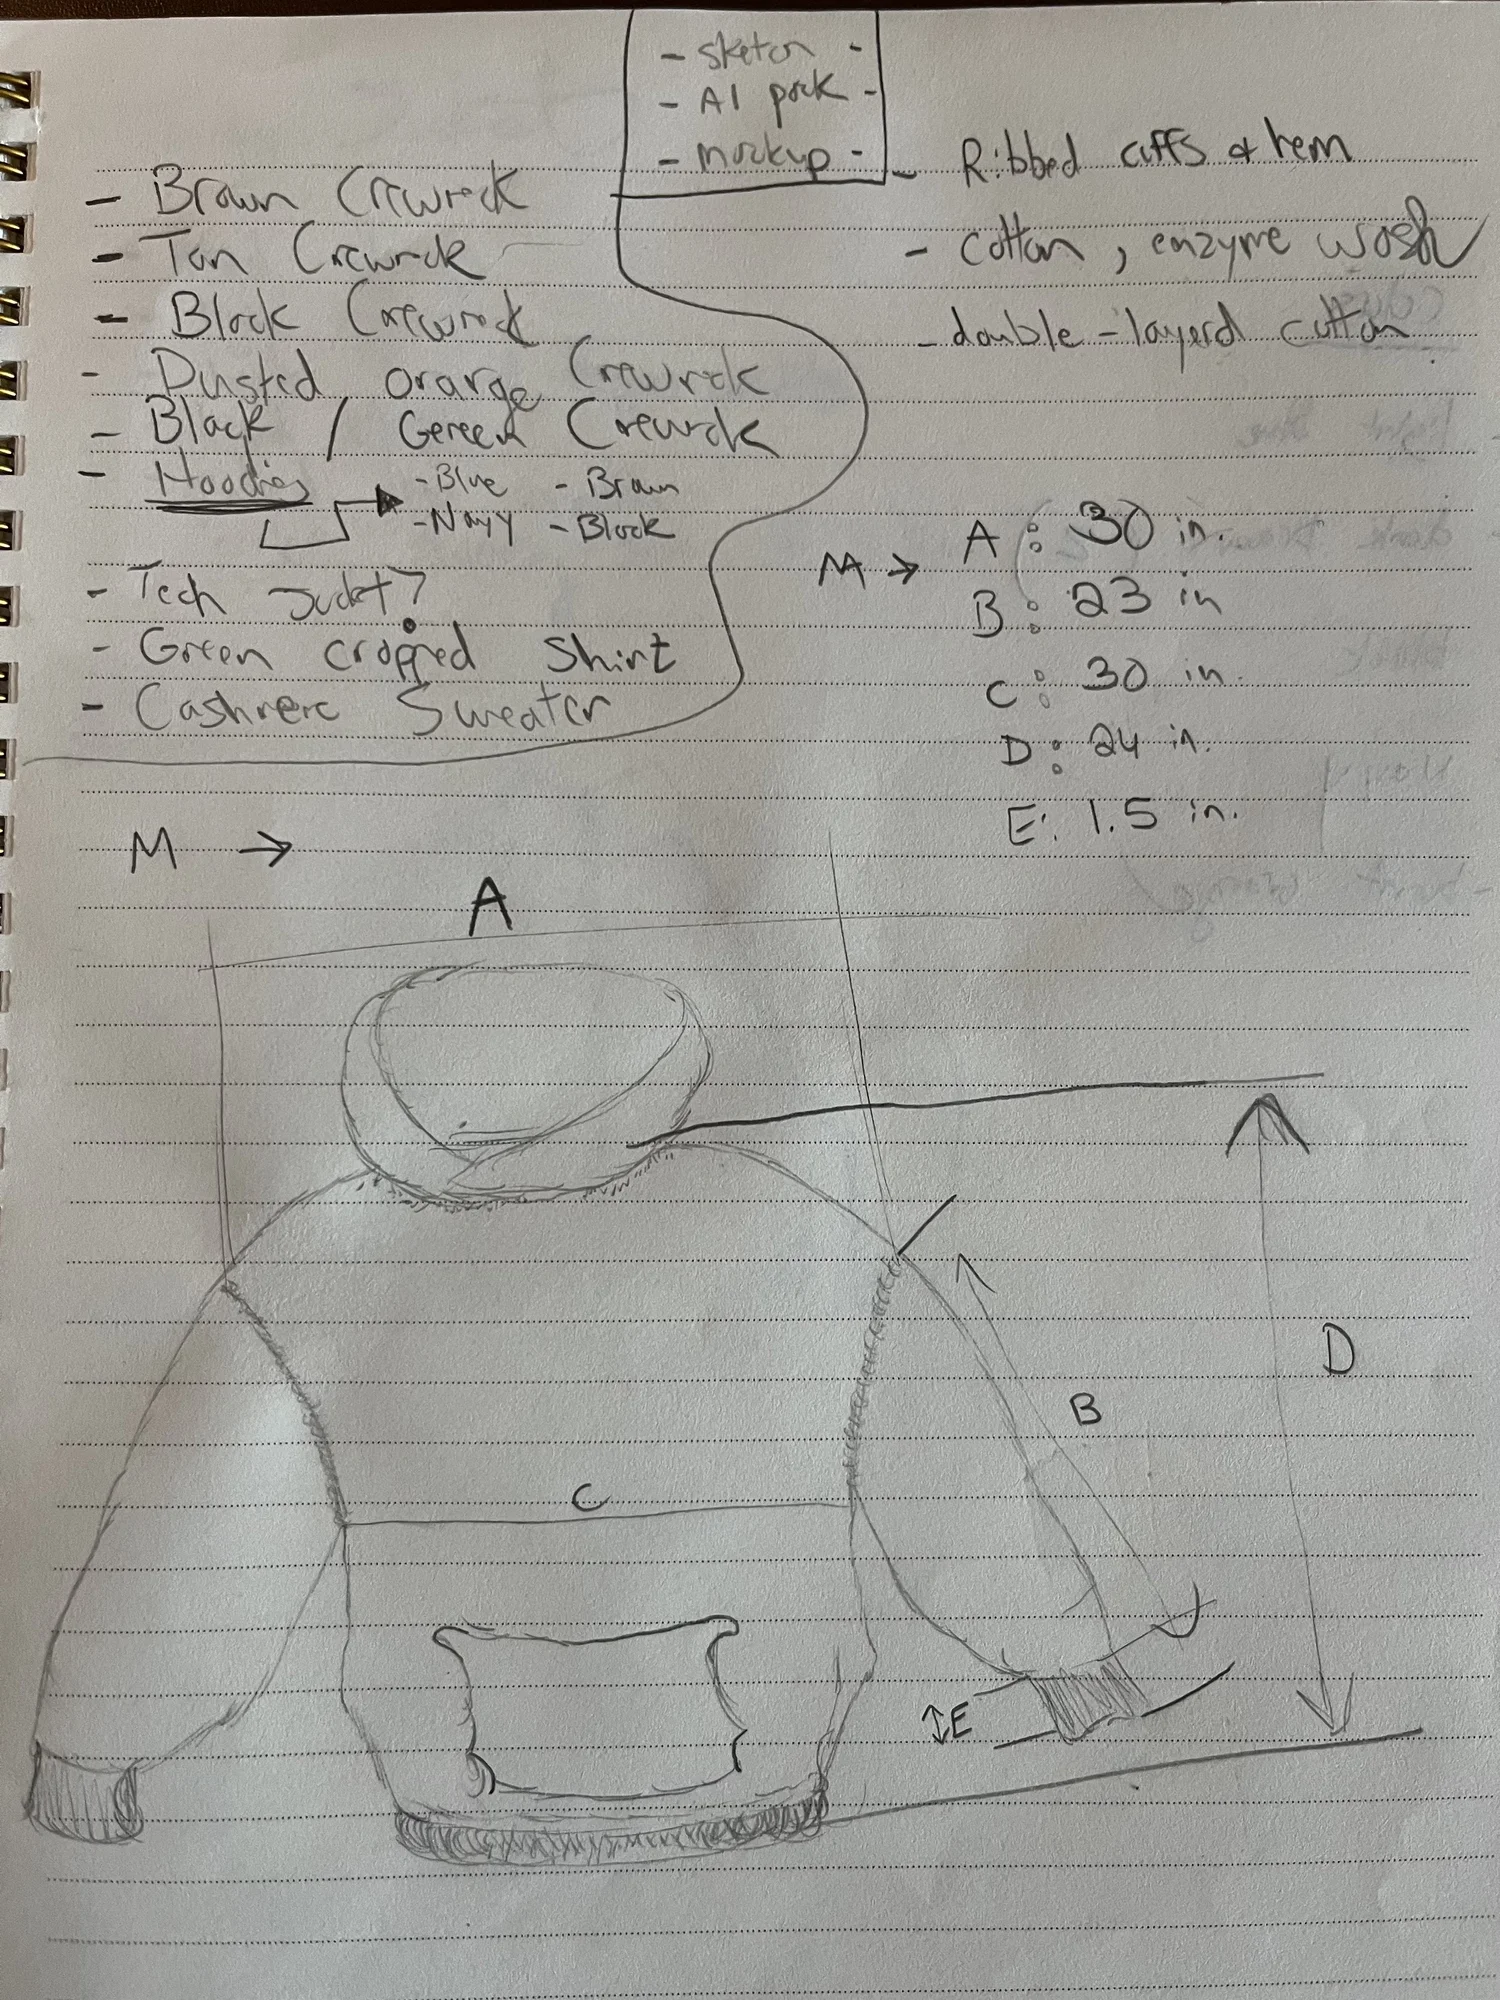 - sketch -
- AI pack -
- mockup -
- Brown Crewneck
- Tan Crewneck
- Black Crewneck
- Dusted orange Crewneck
- Black / Gereen Crewneck
- Hoodies
- Blue - Brown
- Navy - Black
- Tech Jacket?
- Green cropped shirt
- Cashmere Sweater
- Ribbed cuffs & hem
- cotton, enzyme wash
- double-layerd cotton
M → A: 30 in.
B: 23 in
C: 30 in.
D: 24 in.
E: 1.5 in.
M →
A
D
B
C
E